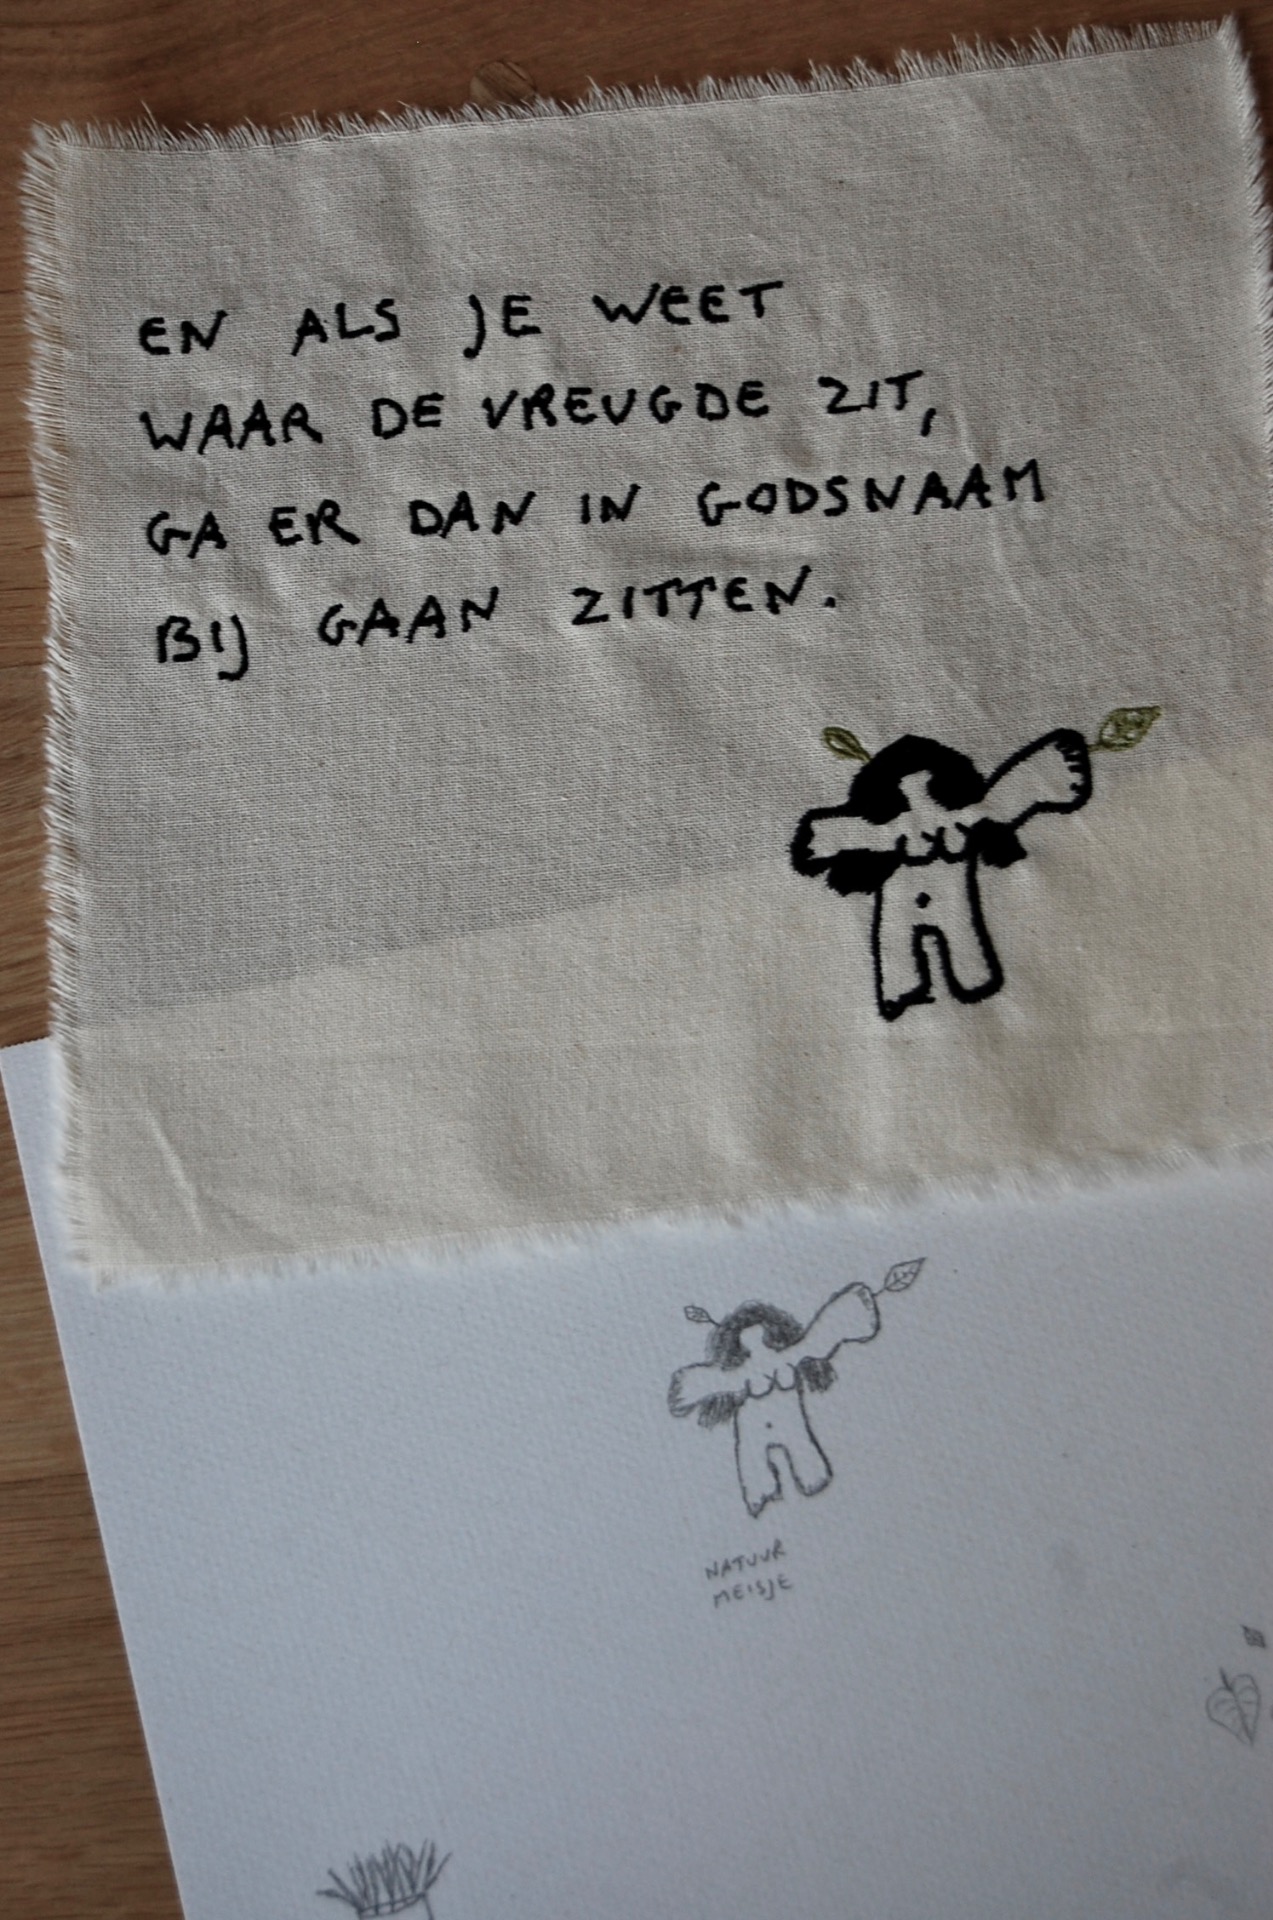 EN ALS JE WEET
WAAR DE VREUGDE ZIT,
GA ER DAN IN GODSNAAM
BIJ GAAN ZITTEN.
NATUUR
MEISJE